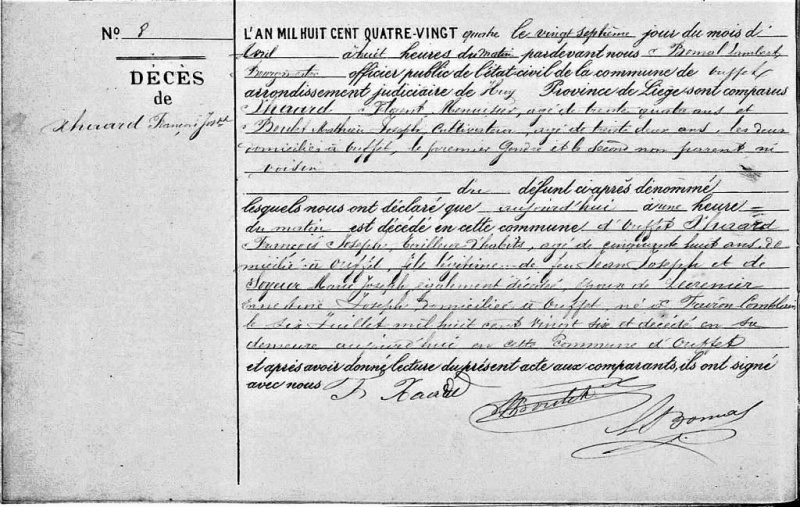 N° 8
DÉCÈS
de
Xhaard François Jos
L'AN MIL HUIT CENT QUATRE-VINGT quatre le vingt septième jour du mois d'
Avril à huit heures du matin pardevant nous Bomal Lambert
Bourgmestre officier public de l'état-civil de la commune de Ouffet
arrondissement judiciaire de Huy Province de Liége sont comparus
Menuisier, agé de trente quatre ans et
Joseph Cultivateur, agé de trente deux ans, les deux
domiciliés à Ouffet, le premier Gendre et le Second non parent ni
voisin
du défunt ci-après dénommé
lesquels nous ont déclaré que aujourd'hui à une heure
du matin est décédé en cette commune d'Ouffet
François Joseph, tailleur d'habits, agé de cinquante huit ans, do
micilié à Ouffet, fils légitime de feu Jean Joseph et de
Marie Joseph également décédés Epoux de
Joseph domicilié à Ouffet né à
le six Juillet mil huit cent vingt six et décédé en sa
demeure aujourd'hui en cette commune d'Ouffet
et après avoir donné lecture du présent acte aux comparants, ils ont signé
avec nous